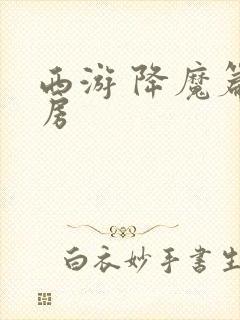 西游降魔篇
房
白衣妙手書生